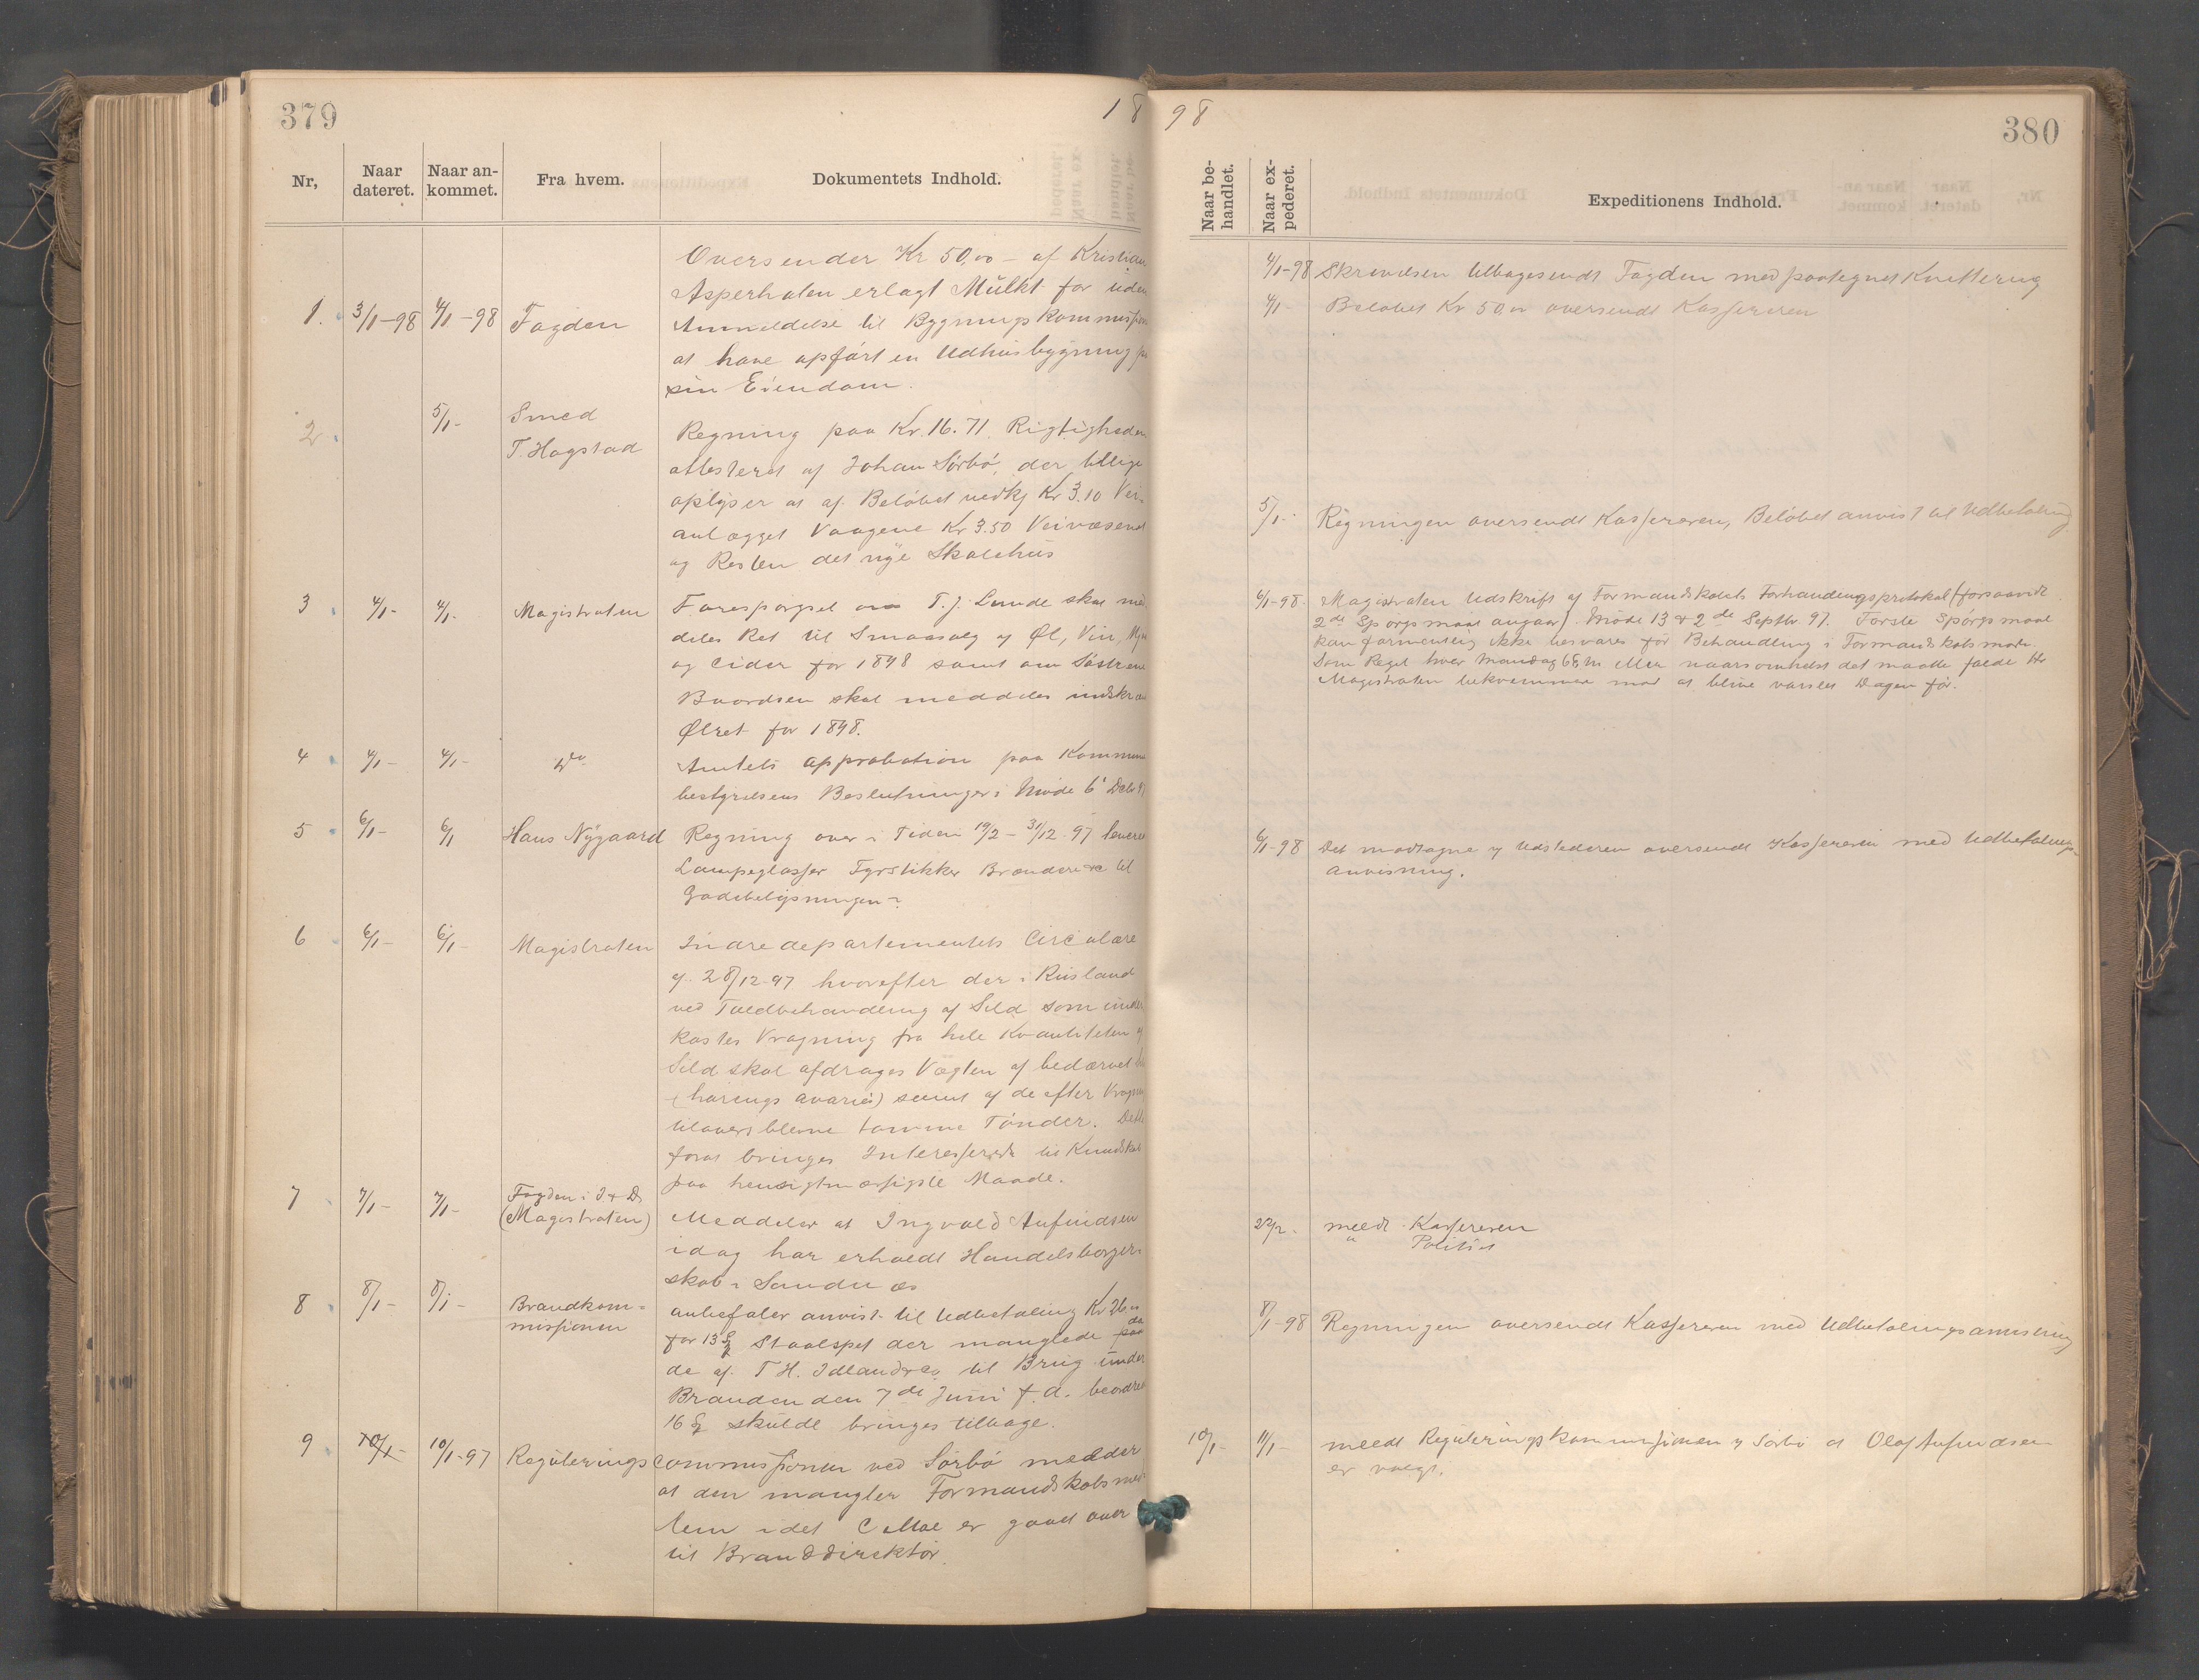 379
18
Nr,
Naar dateret.
Naar an-kommet.
Fra hvem.
Dokumentets Indhold.
1. 3/1-98 4/1-98 Fogden
Oversender Kr 50,00 - af Kristian
Asperholen erlagt Mulkt for uden
Anmeldelse til Bygningskommission
at have opført en Udhusbygning
sin Eiendom.
2. 5/1- Smed
T. Hogstad
Regning paa Kr. 16.71. Rigtigheden
attesteret af Johan Sörbö, der tillige
oplyser at af Beløbet vedkj Kr 3.10 Vei-
anlægget Vaagene Kr 3.50 Veivæsenet
og Resten det nye Skolehus
3 4/1- 4/1- Magistraten
Forespørgsel om T. J. Lunde skal med
deles Ret til Smaasalg af Øl, Vin,
og Cider for 1898 samt om Söstrene
Baardsen skal meddeles
Ølret for 1898.
4 4/1- 4/1- do
Amtets approbation paa Kommune
bestyrelsens Beslutninger i Møde 6'
5 6/1- 6/1 Hans Nÿgaard
Regning over i Tiden 19/2 - 31/12 97
Lampeglasser Fyrstikker Brændere &c til
Gadebelysningen
6 6/1- 6/1- Magistraten
Indredepartementets Circulære
af 28/12-97 hvorefter der i Rusland
ved Toldbehandling af Sild som under
kastes Vragning fra hele Kvantiteten af
Sild skal afdrages Vægten af bedærvet
(harengs avariés) samt af de efter
tiloversblevne tomme Tönder.
forat bringes Interesserede til Kundskab
paa hensigtmæssigste Maade.
7 7/1- 7/1- Fogden i J & D
(Magistraten)
Meddeler at Ingvald Aufindsen
idag har erholdt Handelsborger-
skab i Sandnæs
8 8/1- 8/1- Brandkom-
missionen
anbefaler anvist til Udbetaling Kr 26
for 13 Staalspet der manglede da
de af T H. Idland &Co til Brug under
Branden den 7de Juni f. a. beordrede
16 skulde bringes tilbage.
9 10/1- 10/1-97 Regulerings commissionen ved Sörbö melder
at den mangler Formandskabsmed
lem idet C Moe er gaaet over
til Branddirektör.
98
380
Naar be-handlet.
Naar ex-pederet.
Expeditionens Indhold.
4/1-98 Skrivelsen tilbagesendt Fogden med paategnet Kvittering
4/1- Beløbet Kr 50,00 oversendt Kassereren
5/1- Regningen oversendt Kassereren, Beløbet anvist til Udbetaling
6/1-98. Magistraten Udskrift af Formandskabets Forhandlingsprotokol (forsaavidt
2det Spørgsmaal angaar). Møde 13 & 2de Septbr. 97. Første Spørgsmaal
kan formentlig ikke besvares før Behandling i Formandskabsmøde
Som Regel hver Mandag 6 Em eller naarsomhelst det maatte falde Hr
Magistraten bekvemmere mod at blive varslet Dagen før.
6/1-98 Det modtagne af Udstederen oversendt Kassereren med Udbetalings-
anvisning.
22/2. meldt Kassereren
" Politiet
8/1-98 Regningen oversendt Kassereren med Udbetalingsanvisning
10/1- 11/1- meldt Reguleringskommissionen v Sörbö at Olaf Aufindsen
er valgt.